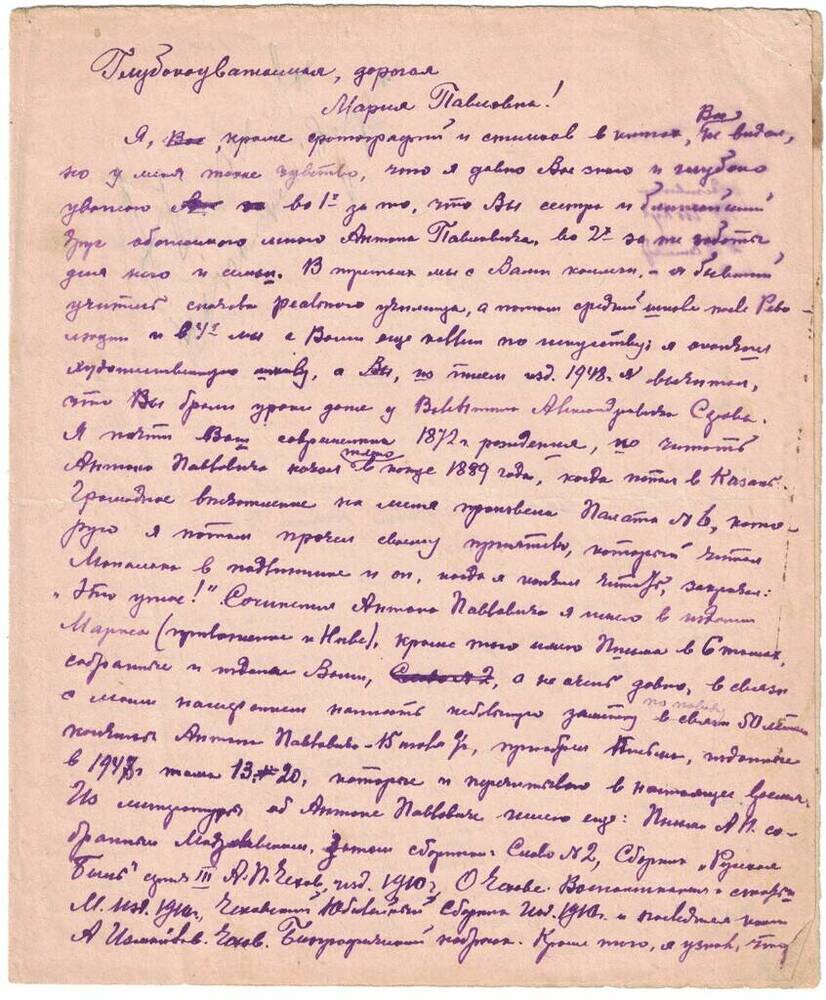 Глубокоуважаемая, дорогая
Мария Павловна!
Я, Вас, кроме фотографий и снимков в книгах, Вас не видал,
но у меня такое чувство, что я давно Вас знаю и глубоко
уважаю во 1х за то, что Вы сестра и ближайший
друг обожаемого мною Антона Павловича, во 2х за те заботы
для него и семьи. В третьих мы с Вами коллеги, - я бывший
учитель сначала реального училища, а потом средней школы после Рево-
люции и в 4х мы с Вами еще коллеги по искусству: я окончил
художественную школу, а Вы, из писем изд. 1948 г. я вычитал,
что Вы брали уроки даже у Валентина Александровича Серова.
Я почти Ваш современник 1872 г. рождения, но читать
Антона Павловича начал только в конце 1889 года, когда попал в Казань.
Громадное впечатление на меня произвела Палата № 6, кото-
рую я потом прочел своему приятелю, который читал
Мопассана в подлиннике и он, когда я кончил читать, закричал:
"Это ужас!" Сочинения Антона Павловича я имею в издании
Маркса (приложение к Ниве), кроме того имею Письма в 6 томах,
собранные и изданные Вами, Слово № 2, а не очень давно, в связи
с моим намерением написать небольшую заметку по поводу в связи 50 летия
кончины Антона Павловича - 15 июля с/г, приобрел Письма, изданные
в 1947 г тома 13 - 20, которые и перечитываю в настоящее время.
Из литературы об Антоне Павловиче имею еще: Письма А.П. со-
бранные Затем сборники: Слово № 2, Сборник "Русская
Быль" серия III А.П. Чехов, изд. 1910 г, О Чехове. Воспоминания и статьи
М. изд. 1910 г., Чеховский Юбилейный Сборник изд. 1910 г. и последняя книга
А Измайлов. Чехов. Биографический набросок. Кроме того, я узнал, что